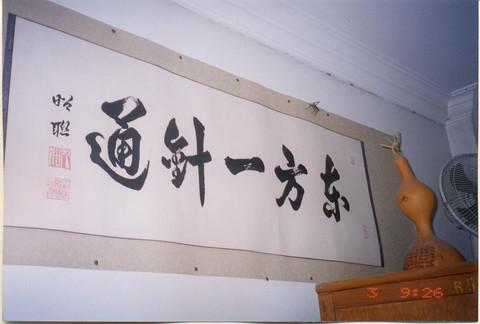 东方一針通
昭聯
3 9:26